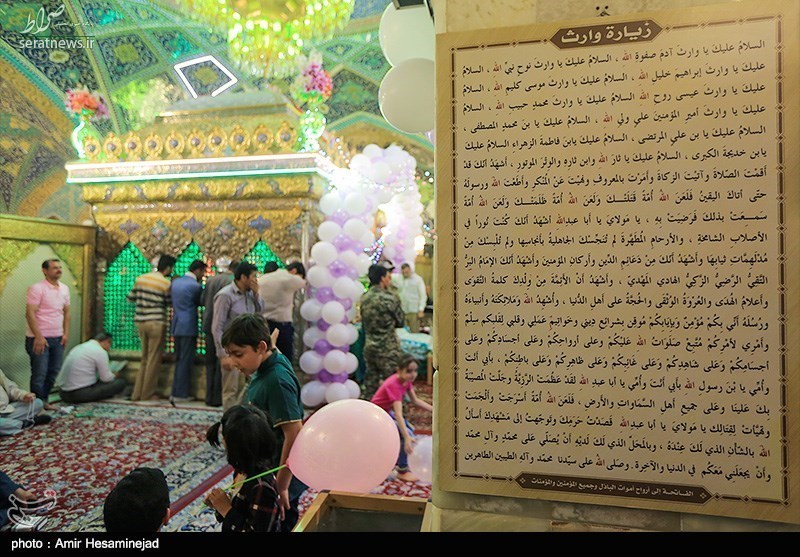 صراط
seratnews.ir
زيارة وارث
السلامُ عليكَ يا وارثَ آدمَ صفوةِ الله ، السلامُ عليكَ يا وارثَ نوحٍ نبيِّ الله ، السلامُ
عليكَ يا وارثَ إبراهيمَ خليلِ الله ، السلامُ عليكَ يا وارثَ موسى كليمِ الله ، السلامُ
عليكَ يا وارثَ عيسى روحِ الله السلامُ عليكَ يا وارثَ محمدٍ حبيبِ الله ، السلامُ
عليكَ يا وارثَ أميرِ المؤمنينَ عليٍ وليِ الله ، السلامُ عليكَ يا بنَ محمدٍ المصطفى ،
السلامُ عليكَ يا بن عليٍ المرتضى ، السلامُ عليكَ يابنَ فاطمةَ الزهراء السلامُ عليكَ
يا بن خديجةَ الكبرى ، السلامُ عليكَ يا ثارَ الله وابنَ ثارِهِ والوِترَ الموتور ، أشهدُ أنّكَ قدْ
أقمْتَ الصّلاةَ وآتيْتَ الزكاةَ وأمَرْتَ بالمعروفِ ونهيْتَ عنْ المُنكرِ وأطعْتَ الله ورسولَهُ
حتى أتاكَ اليقينُ فلَعَنَ الله أمّةً قَتَلتْكَ ولَعَنَ الله أمّةً ظَلَمَتْكَ ولَعَنَ الله أمّةً
سَمِعَتْ بذلكَ فَرَضِيَتْ بِهِ ، يا مَولايَ يا أبا عبدِالله أشهَدُ أنّكَ كُنتَ نُوراً في
الأصلابِ الشامخةِ ، والأرحامِ المُطهّرةِ لم تُنجّسْكَ الجاهليةُ بأنجاسِها ولم تُلبِسْكَ مِنْ
مُدْلَهِمّاتِ ثيابِها وأشهدُ أنّكَ مِنْ دَعائِمِ الدّينِ وأركانِ المؤمنينَ وأشهدُ أنّكَ الإمامُ البَرُّ
التّقيُّ الرّضيُّ الزّكيُّ الهادي المَهْديّ ، وأشهَدُ أنّ الأئمّةَ مِنْ وِلدِكَ كلِمةُ التّقوى
وأعلامُ الهُدى والعُرْوَةُ الوُثْقى والحُجّةُ على أهلِ الدُنيا ، وأُشهِدُ الله ومَلائِكتَهُ وأنبياءَهُ
ورُسُلَهُ أنّي بكُمْ مُؤمِنٌ وبإيابِكُمْ مُوقِنٌ بشرائعِ ديني وخَواتيمِ عَمَلي وقلبي لِقلبِكُم سِلْمٌ
وأمْري لأمْرِكُمْ مُتّبِعٌ صلَواتُ الله عَليْكُمْ وعلى أرواحِكُمْ وعلى أجسادِكُمْ وعلى
أجسامِكُمْ وعَلى شاهِدِكُمْ وعَلى غائبِكُمْ وعَلى ظاهِرِكُمْ وعَلى باطِنِكُمْ ، بأبي أنتَ
وأُمّي يا بنَ رسولِ الله بأبي أنتَ وأُمّي يا أبا عبدِ الله لقدْ عظُمَتْ الرّزيّةُ وجَلّتْ المُصيبَةُ
بِكَ عَلينا وعَلى جَميعِ أهلِ السّماواتِ والأرض ، فلَعَنَ الله أُمّةً أسْرَجَتْ وألْجَمَتْ
وتَهيّأتْ لِقِتالِكَ يا مَولايَ يا أبا عبدِالله قَصَدْتُ حَرمَكَ وتوجّهتُ إلى مَشهَدِكَ أسألُ
الله بالشّأنِ الذي لَكَ عِنْدَهُ ، وبالمَحَلِّ الذي لَكَ لديْهِ أنْ يُصَلّي على محمّدٍ وآلِ محمد
وأنْ يجعَلَني مَعَكُم في الدنيا والآخرة. وصلى الله على سيّدنا محمّد وآله الطيبين الطاهرين
الفاتحة إلى أرواح أموات الباذل وجميع المؤمنين والمؤمنات
photo : Amir Hesaminejad